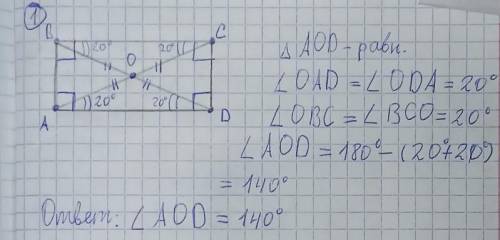 1
B 20° 20° C
O
20° 20°
A D
△ AOD - равн.
∠OAD = ∠ODA = 20°
∠OBC = ∠BCO = 20°
∠AOD = 180° - (20°+20°)
= 140°
Ответ: ∠AOD = 140°